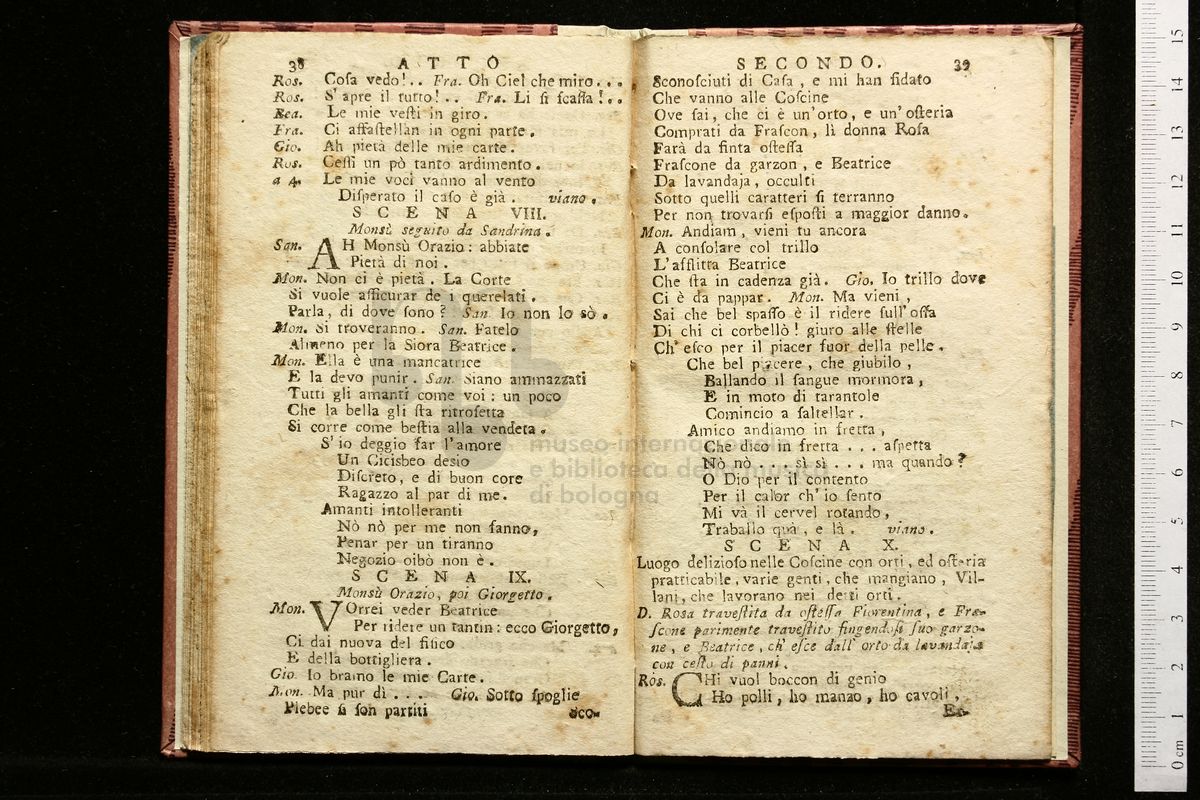 38 ATTO
Ros. Coſa vedo!.. Fra. Oh Ciel che miro...
Ros. S'apre il tutto!.. Fra. Li ſi ſcaſſa!..
Bea. Le mie veſti in giro.
Fra. Ci affaſtellan in ogni parte.
Gio. Ah pietà delle mie carte.
Ros. Ceſſi un pò tanto ardimento.
a 4. Le mie voci vanno al vento
Diſperato il caſo è già. viano.
SCENA VIII.
Monsù seguito da Sandrina.
San. AH Monsù Orazio: abbiate
Pietà di noi.
Mon. Non ci è pietà. La Corte
Si vuole aſſicurar de i querelati.
Parla, di dove ſono? San. Io non lo sò.
Mon. Si troveranno. San. Fatelo
Almeno per la Siora Beatrice.
Mon. Ella è una mancatrice
E la devo punir. San. Siano ammazzati
Tutti gli amanti come voi: un poco
Che la bella gli ſta ritroſetta
Si corre come beſtia alla vendeta.
S'io deggio far l'amore
Un Ciciſbeo deſio
Diſcreto, e di buon core
Ragazzo al par di me.
Amanti intolleranti
Nò nò per me non fanno,
Penar per un tiranno
Negozio oibò non è.
SCENA IX.
Monsù Orazio, poi Giorgetto.
Mon. VOrrei veder Beatrice
Per ridere un tantin: ecco Giorgetto,
Ci dai nuova del fitico
E della bottigliera.
Gio. Io bramo le mie Carte.
Mon. Ma pur dì .... Gio. Sotto ſpoglie
Plebee ſi ſon partiti
Sco-
SECONDO. 39
Sconoſciuti di Caſa, e mi han fidato
Che vanno alle Coſcine
Ove ſai, che ci è un'orto, e un'oſteria
Comprati da Fraſcon, lì donna Roſa
Farà da finta oſteſſa
Fraſcone da garzon, e Beatrice
Da lavandaja, occulti
Sotto quelli caratteri ſi terranno
Per non trovarſi eſpoſti a maggior danno.
Mon. Andiam, vieni tu ancora
A conſolare col trillo
L'afflitta Beatrice
Che ſta in cadenza già. Gio. Io trillo dove
Ci è da pappar. Mon. Ma vieni,
Sai che bel ſpaſſo è il ridere full'oſſa
Di chi ci corbellò! giuro alle ſtelle
Ch'eſco per il piacer fuor della pelle.
Che bel piacere, che giubilo,
Ballando il ſangue mormora,
E in moto di tarantole
Comincio a ſaltellar.
Amico andiamo in fretta,
Che dico in fretta ... aſpetta
Nò nò .... sì sì ... ma quando?
O Dio per il contento
Per il calor ch'io ſento
Mi và il cervel rotando,
Traballo quà, e là. viano.
SCENA X.
Luogo delizioſo nelle Coſcine con orti, ed oſteria
pratticabile, varie genti, che mangiano, Vil-
lani, che lavorano nei detti orti.
D. Rosa traveſtita da oſteſſa Fiorentina, e Fra-
ſcone parimente traveſtito fingendoſi ſuo garzo-
ne, e Beatrice, ch'eſce dall'orto da lavandaja
con ceſto di panni.
Ros. CHi vuol boccon di genio
Ho polli, ho manzo, ho cavoli,
museo internazionale
e biblioteca della musica
di bologna
15
14
13
12
11
10
9
8
7
6
5
4
3
2
1
0 cm